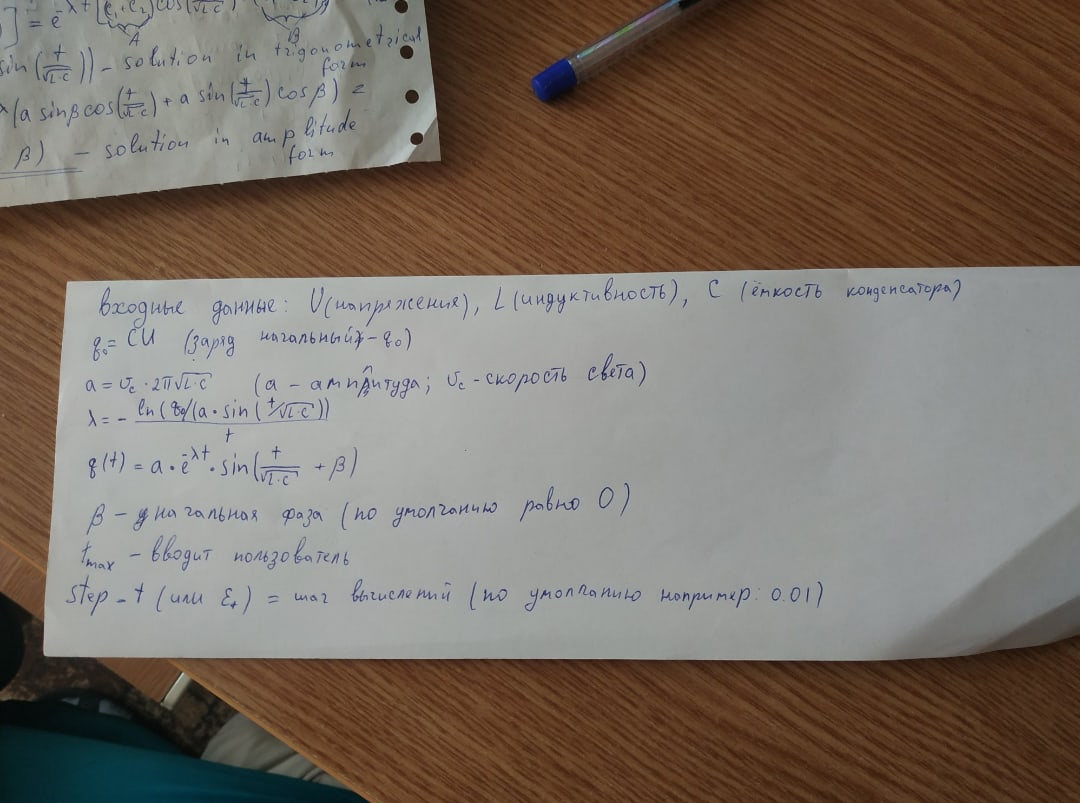 ] = e^-λt [(c₁ + c₂) cos(
A B
sin(t/√L·C)) – solution in trigonometrical form
(a sinβ cos(t/√L·C) + a sin(t/√L·C) cosβ) =
β) – solution in amplitude form
входные данные: U(напряжения), L(индуктивность), C (ёмкость конденсатора)
q₀ = CU (заряд начальный – q₀)
a = υc · 2π√L·C (a – амплитуда; υc – скорость света)
λ = – ln(q₀/(a · sin(t/√L·C))) / t
q(t) = a · e^-λt · sin(t/√L·C + β)
β – начальная фаза (по умолчанию равно 0)
tmax – вводит пользователь
step_t (или Ɛt) = шаг вычислений (по умолчанию например: 0.01)